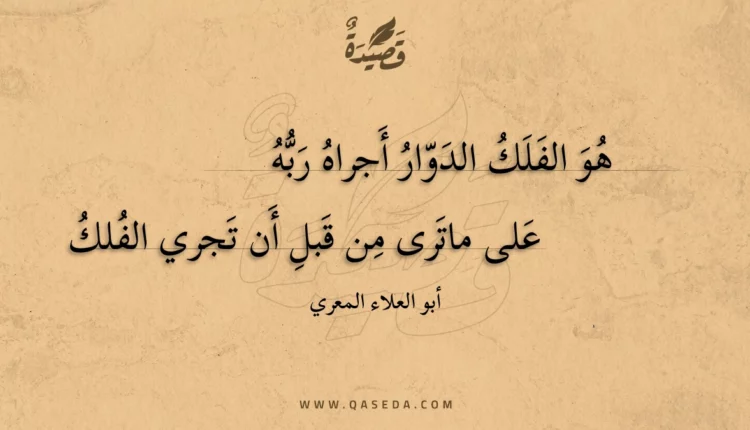 قَصِيْدَةٌ
هُوَ الفَلَكُ الدَوّارُ أَجراهُ رَبُّهُ
عَلى ماتَرى مِن قَبلِ أَن تَجري الفُلكُ
أبو العلاء المعري
WWW.QASEDA.COM